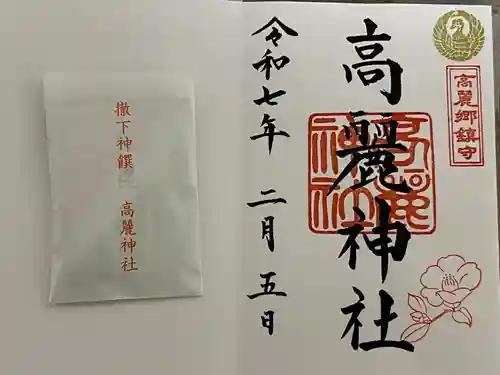 高麗郷鎮守
高麗神社
高麗神社
令和七年 二月五日
撤下神饌
高麗神社